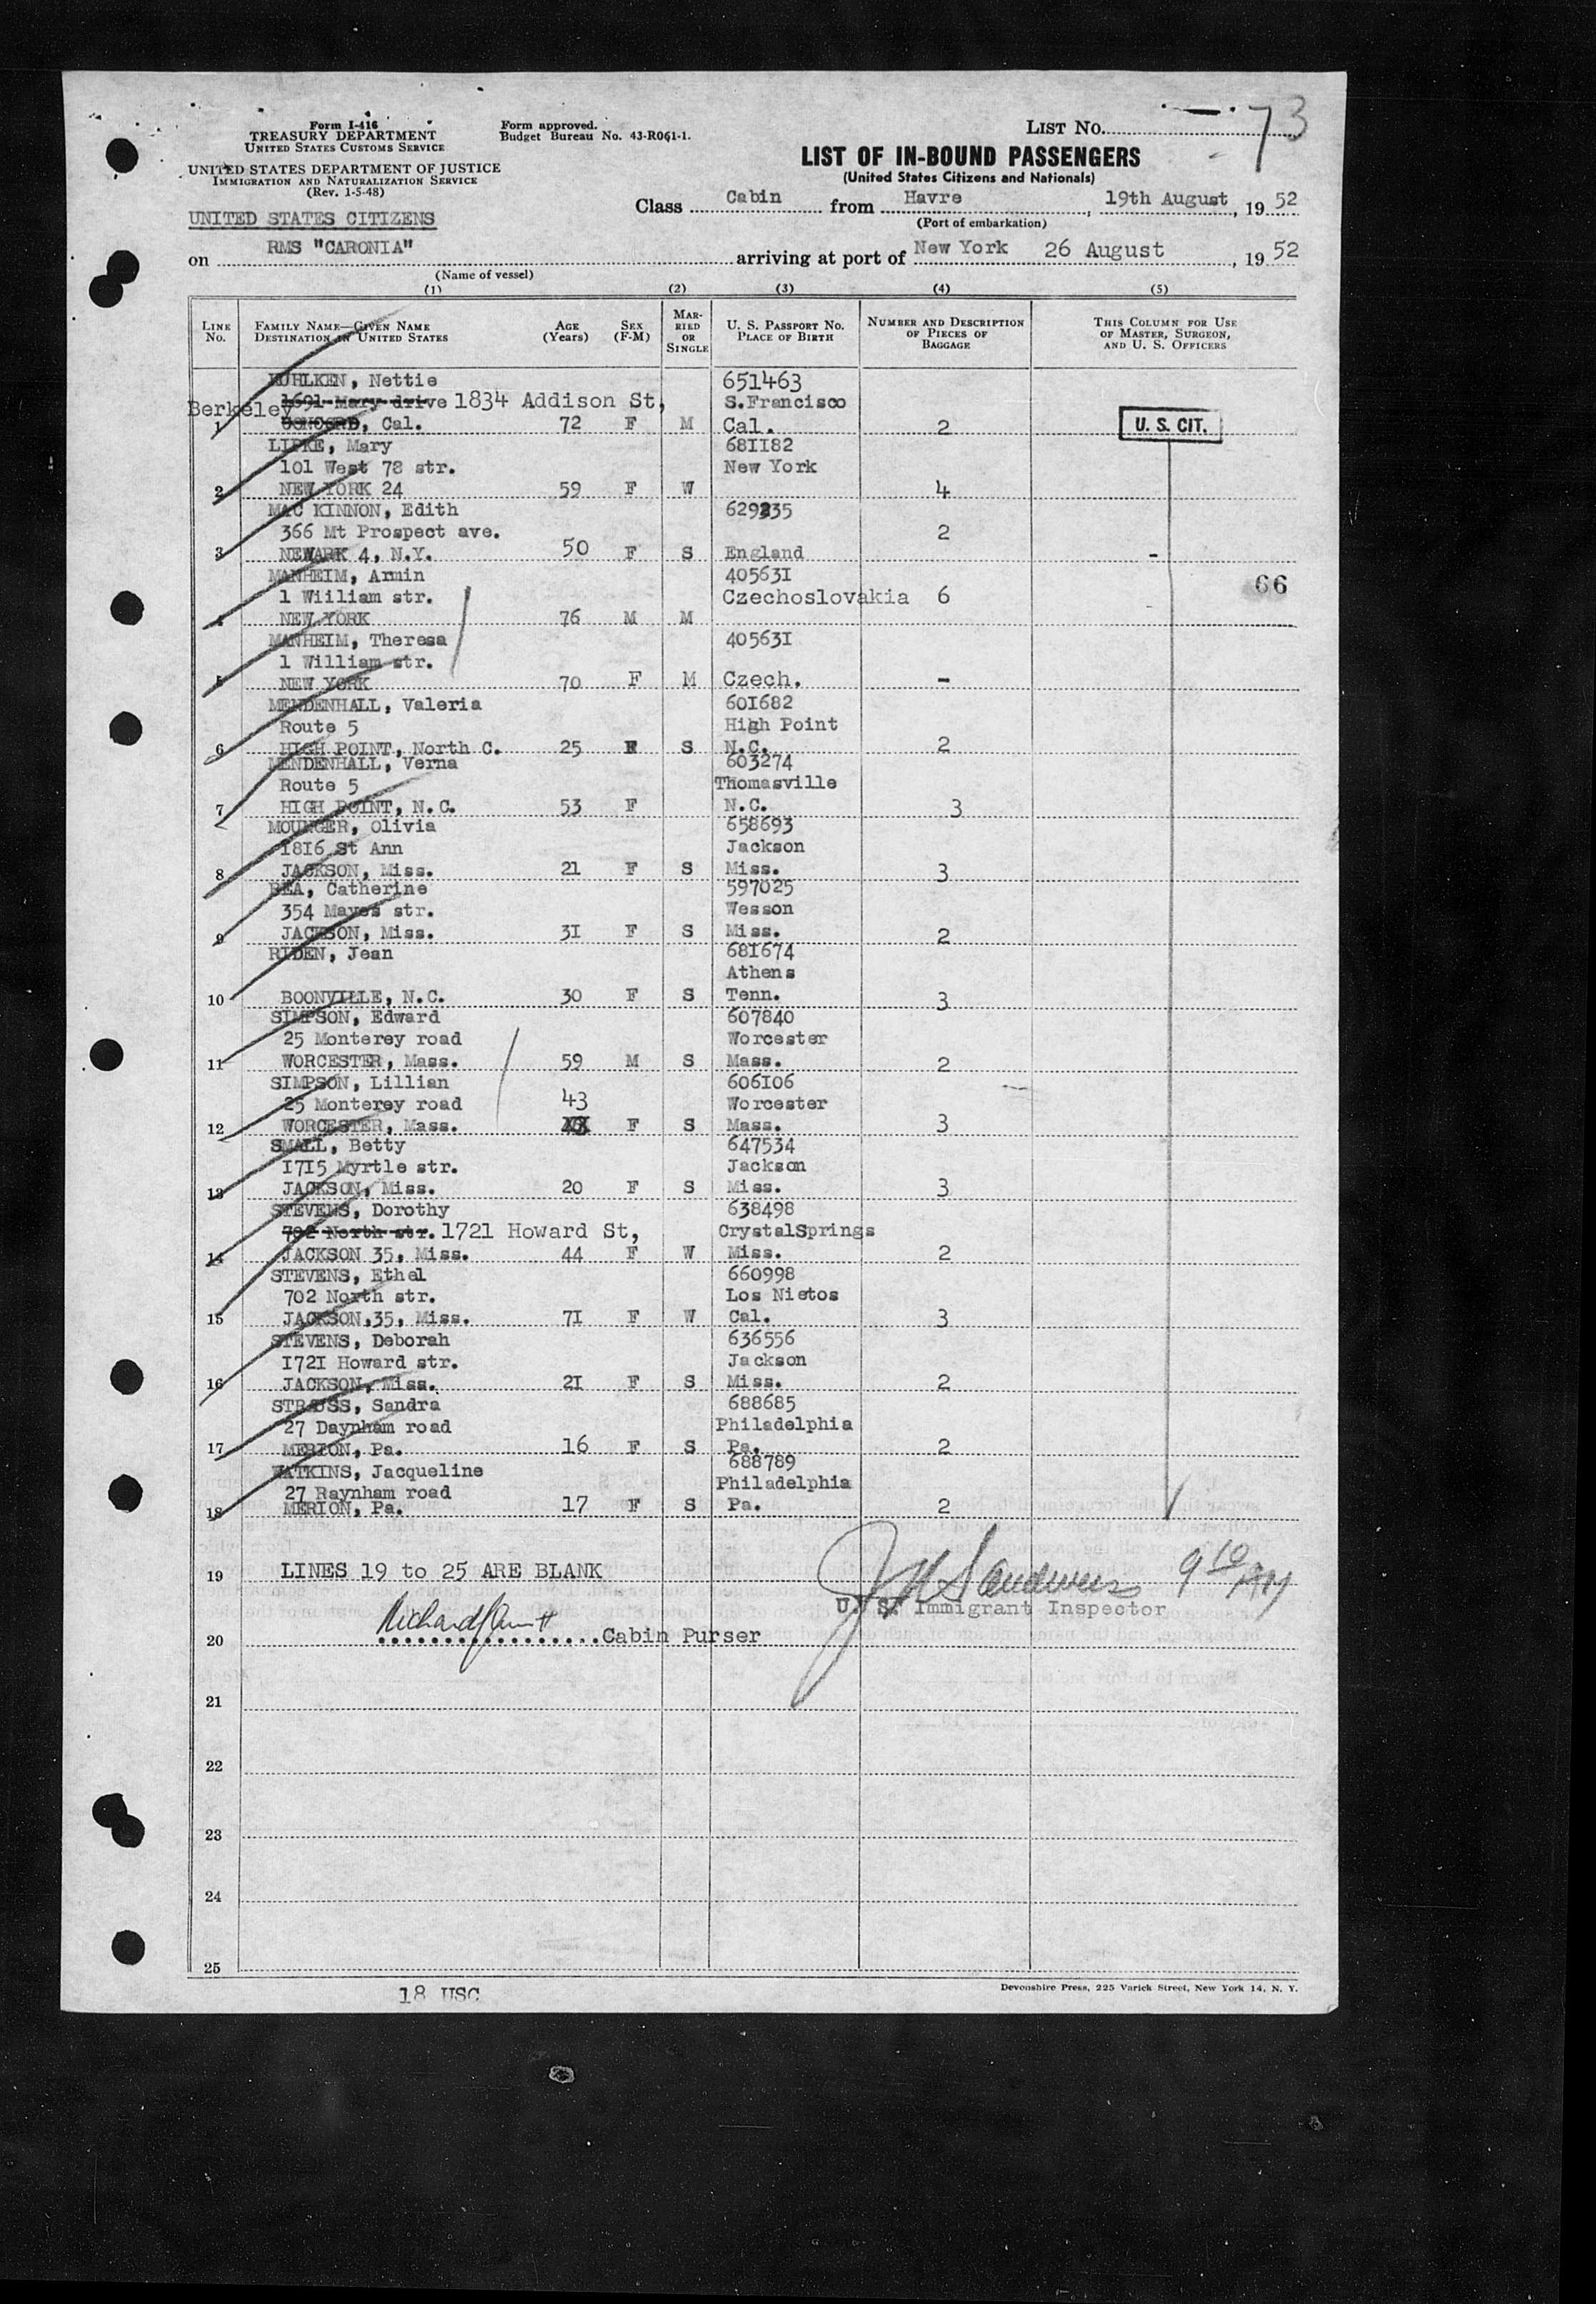 Form I-416
TREASURY DEPARTMENT
UNITED STATES CUSTOMS SERVICE
UNITED STATES DEPARTMENT OF JUSTICE
IMMIGRATION AND NATURALIZATION SERVICE
(Rev. 1-5-48)
Form approved.
Budget Bureau No. 43-R061-1.
LIST No. 73
LIST OF IN-BOUND PASSENGERS
(United States Citizens and Nationals)
UNITED STATES CITIZENS
Class Cabin from Havre, 19th August, 19 52
(Port of embarkation)
on RMS "CARONIA" arriving at port of New York 26 August, 19 52
(Name of vessel)
(1) (2) (3) (4) (5)
LINE No. FAMILY NAME—GIVEN NAME DESTINATION IN UNITED STATES AGE (Years) SEX (F-M) MARRIED OR SINGLE U. S. PASSPORT No. PLACE OF BIRTH NUMBER AND DESCRIPTION OF PIECES OF BAGGAGE THIS COLUMN FOR USE OF MASTER, SURGEON, AND U. S. OFFICERS
KUHLKEN, Nettie 651463
Berkeley 1691 Mary drive 1834 Addison St, S.Francisco
1 CONCORD, Cal. 72 F M Cal. 2 U. S. CIT.
LIPKE, Mary 681182
101 West 78 str. New York
2 NEW YORK 24 59 F W 4
MAC KINNON, Edith 629235
366 Mt Prospect ave. 2
3 NEWARK 4, N.Y. 50 F S England -
MANHEIM, Armin 405631 66
1 Wiiliam str. Czechoslovakia 6
4 NEW YORK 76 M M
MANHEIM, Theresa 405631
1 William str.
5 NEW YORK 70 F M Czech. -
MENDENHALL, Valeria 601682
Route 5 High Point
6 HIGH POINT, North C. 25 F S N.C. 2
MENDENHALL, Verna 603274
Route 5 Thomasville
7 HIGH POINT, N.C. 53 F N.C. 3
MOUNGER, Olivia 658693
1816 St Ann Jackson
8 JACKSON, Miss. 21 F S Miss. 3
REA, Catherine 597025
354 Mayes str. Wesson
9 JACKSON, Miss. 31 F S Miss. 2
RIDEN, Jean 681674
Athens
10 BOONVILLE, N.C. 30 F S Tenn. 3
SIMPSON, Edward 607840
25 Monterey road Worcester
11 WORCESTER, Mass. 59 M S Mass. 2
SIMPSON, Lillian 606106
25 Monterey road 43 Worcester
12 WORCESTER, Mass. F S Mass. 3
SMALL, Betty 647534
1715 Myrtle str. Jackson
13 JACKSON, Miss. 20 F S Miss. 3
STEVENS, Dorothy 638498
702 North str. 1721 Howard St, CrystalSprings
14 JACKSON 35, Miss. 44 F W Miss. 2
STEVENS, Ethel 660998
702 North str. Los Nietos
15 JACKSON,35, Miss. 71 F W Cal. 3
STEVENS, Deborah 636556
1721 Howard str. Jackson
16 JACKSON, Miss. 21 F S Miss. 2
STRAUSS, Sandra 688685
27 Daynham road Philadelphia
17 MERION, Pa. 16 F S Pa. 2
WATKINS, Jacqueline 688789
27 Raynham road Philadelphia
18 MERION, Pa. 17 F S Pa. 2
19 LINES 19 to 25 ARE BLANK 9 10 AM
U. S. Immigrant Inspector
20 Cabin Purser
21
22
23
24
25
18 USC
Devonshire Press, 225 Varick Street, New York 14, N. Y.